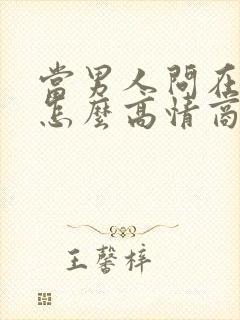 當男人問在
怎麼高情商
王馨梓